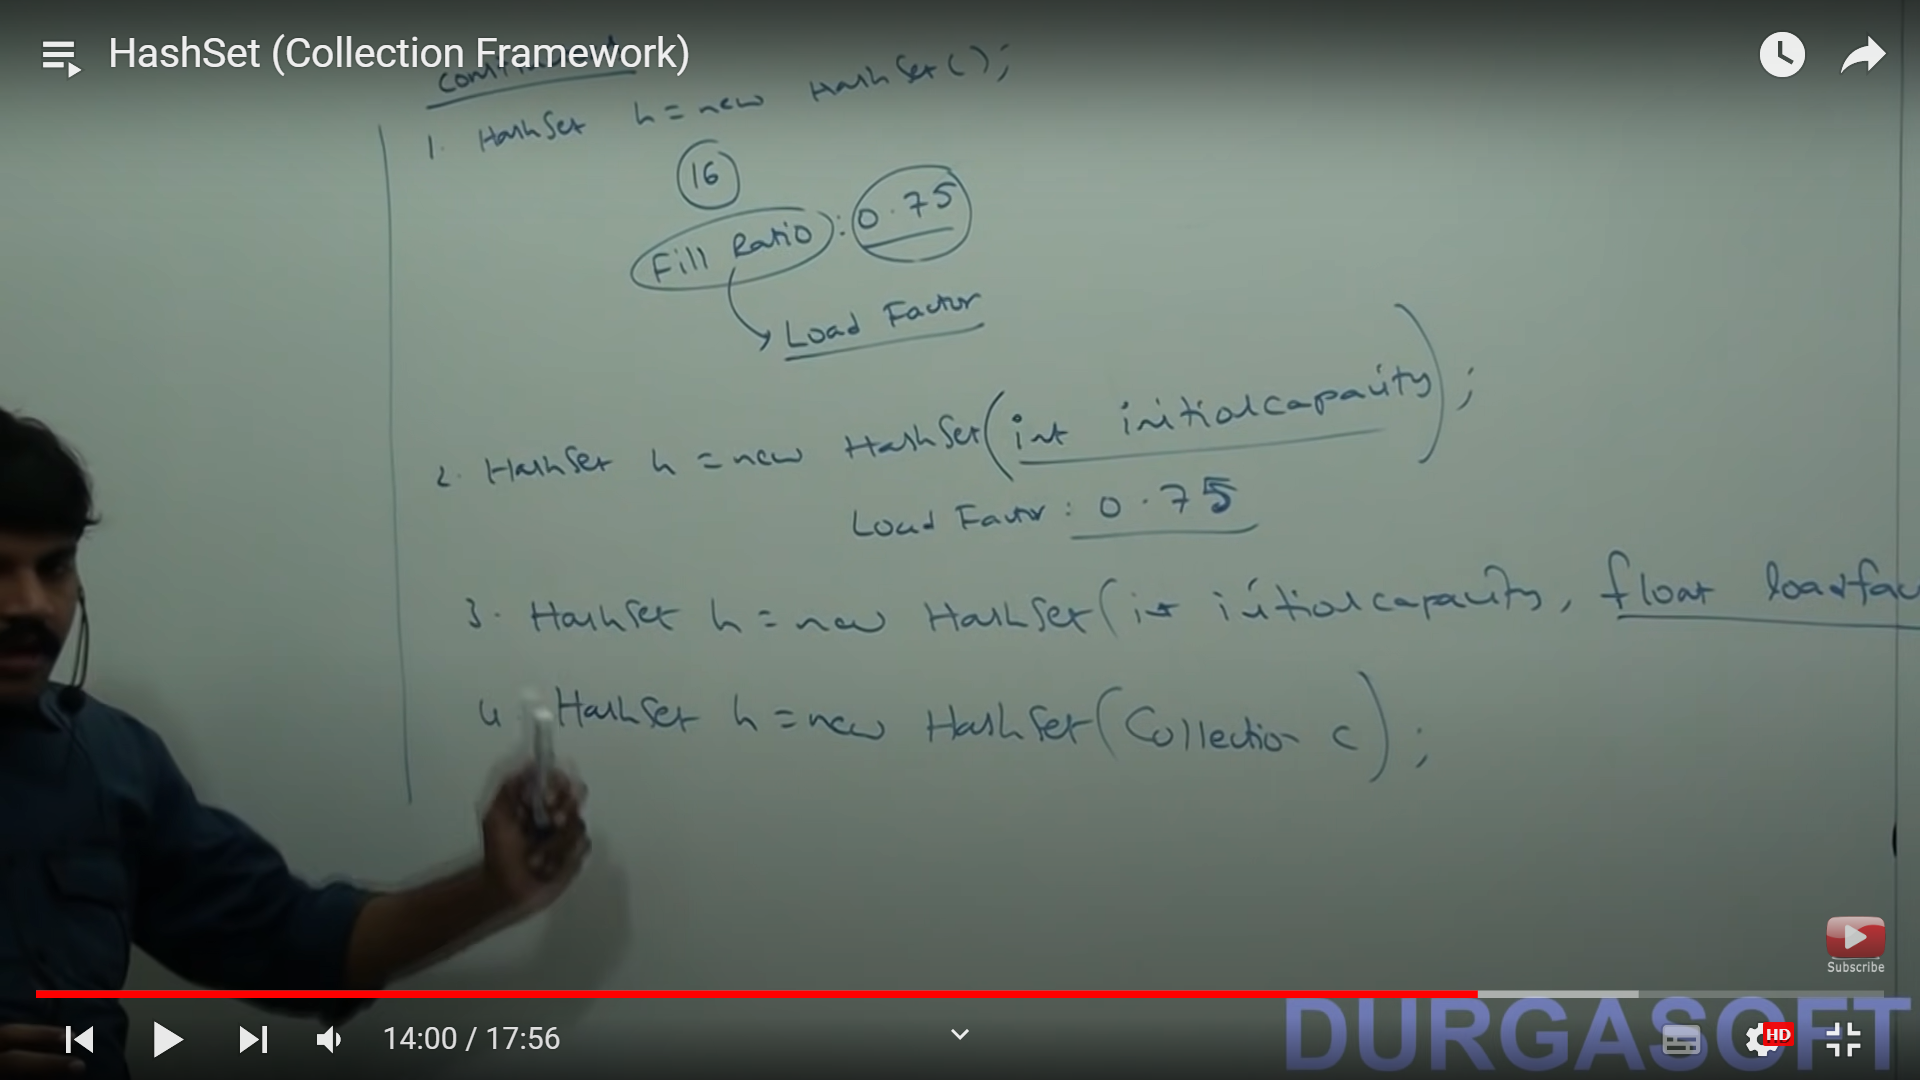 HashSet (Collection Framework)
1. HashSet h = new HashSet();
16
Fill Ratio : 0.75
Load Factor
2. HashSet h = new HashSet(int initialcapacity);
Load Factor : 0.75
3. HashSet h = new HashSet(int initialcapacity, float loadfac
4. HashSet h = new HashSet(Collection c);
Subscribe
DURGASOFT
14:00 / 17:56
HD